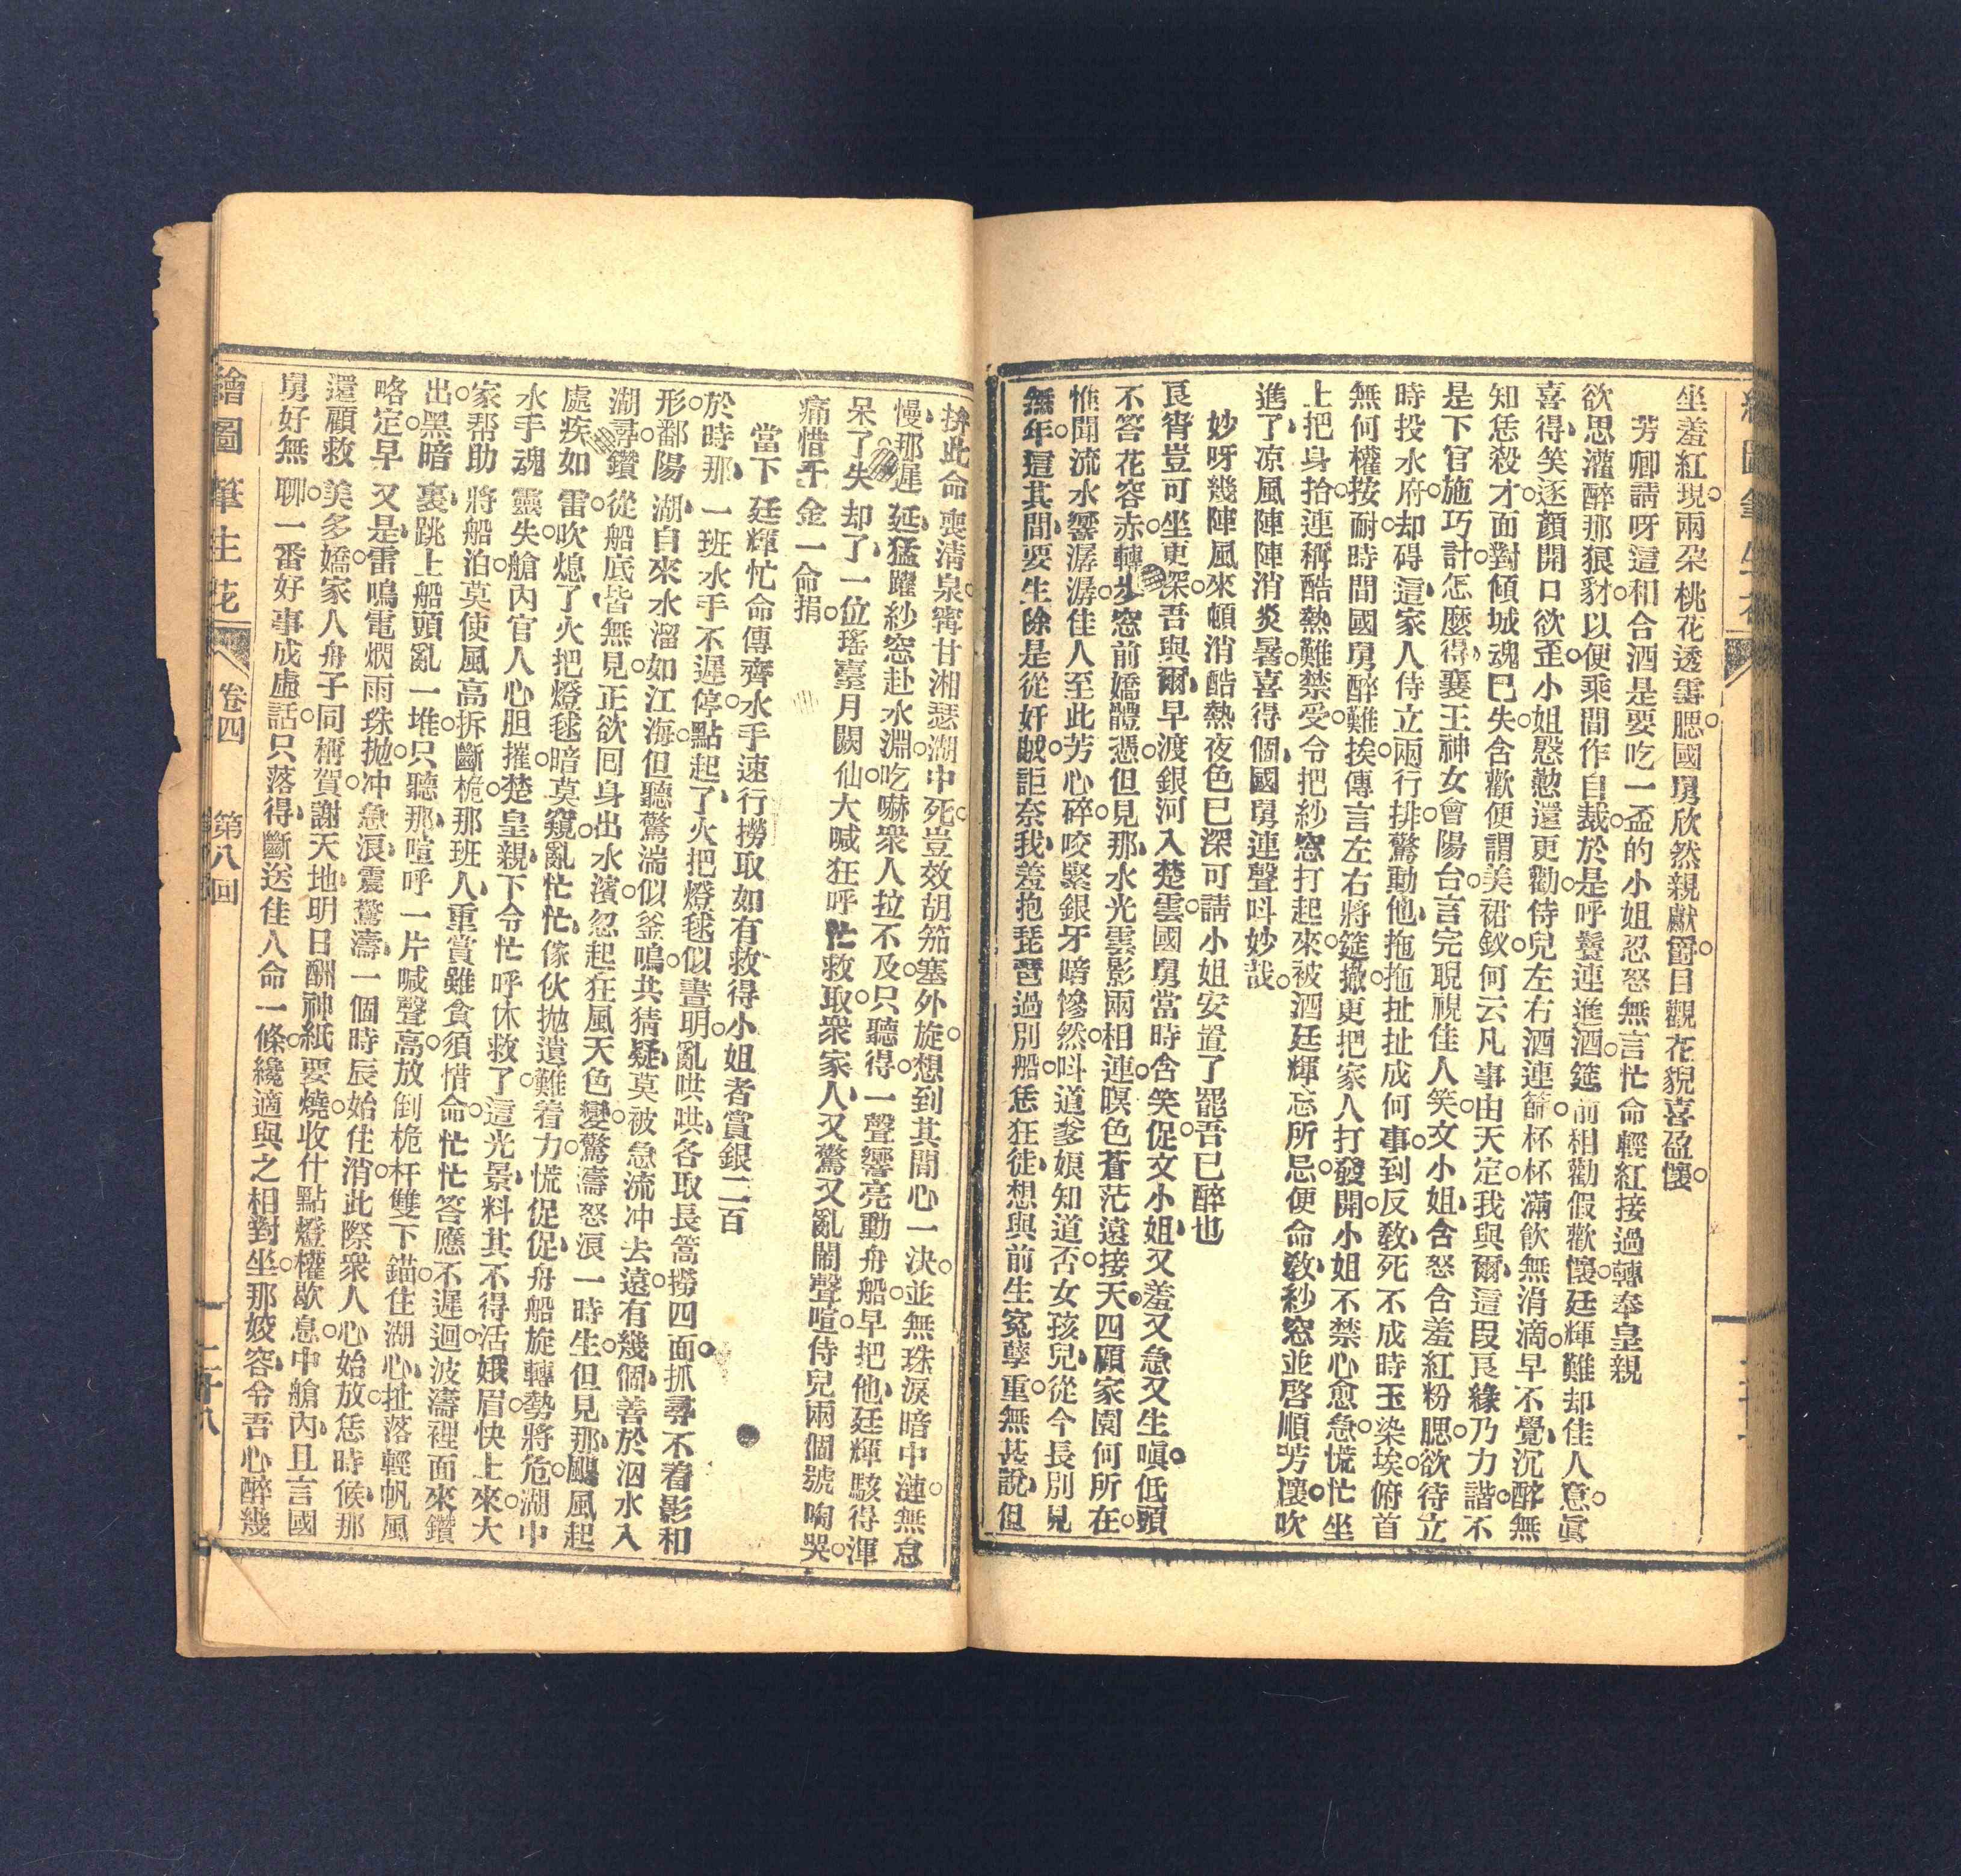 坐羞紅現。兩朵桃花透雪腮。國舅欣然親獻爵。目觀花貌喜盈懷。
芳卿請呀這和合酒是要吃一盃的小姐忍怒無言忙命輕紅接過轉奉皇親
欲思灌醉那狼豺。以便乘間作自裁。於是呼鬟連進酒。筵前相勸假歡懷。廷輝難却佳人意。眞
喜得笑逐顏開口欲歪。小姐慇懃還更勸。侍兒左右酒連篩。杯杯滿飲無涓滴。早不覺沉醉無
知恁殺才。面對傾城魂已失。含歡便謂美裙釵。何云凡事由天定。我與爾這段良緣乃力諧。不
是下官施巧計。怎麼得襄王神女會陽台。言完睨視佳人笑。文小姐含怒含羞紅粉腮。欲待立
時投水府。却碍這家人侍立兩行排。驚動他拖拖扯扯成何事。到反教死不成時玉染埃。俯首
無何權按耐。時間國舅醉難挨。傳言左右將筵撤。更把家人打發開。小姐不禁心愈急。慌忙坐
上把身抬。連稱酷熱難禁受。令把紗窓打起來。被酒廷輝忘所忌。便命教紗窓並啓順芳懷。吹
進了凉風陣陣消炎暑。喜得個國舅連聲呌妙哉。
妙呀幾陣風來頓消酷熱夜色已深可請小姐安置了罷吾已醉也
良宵豈可坐更深。吾與爾早渡銀河入楚雲。國舅當時含笑促。文小姐又羞又急又生嗔。低頭
不答花容赤。轉步窓前嬌體憑。但見那水光雲影兩相連。暝色蒼茫遠接天。四顧家園何所在。
惟聞流水響潺潺。佳人至此芳心碎。咬緊銀牙暗慘然。呌道爹娘知道否。女孩兒從今長別見
無年。這其間要生除是從奸賊。詎奈我羞抱琵琶過別船。恁狂徒想與前生寃孽重。無甚說但
拚此命喪清泉。寗甘湘瑟湖中死。豈效胡笳塞外旋。想到其間心一決。並無珠淚暗中漣。無怠
慢那遲延。猛躍紗窓赴水淵。吃嚇衆人拉不及。只聽得一聲響亮動舟船。早把他廷輝駭得渾
呆了。失却了一位瑤臺月闕仙。大喊狂呼忙救取。衆家人又驚又亂鬧聲喧。侍兒兩個號啕哭。
痛惜千金一命捐。
當下廷輝忙命傳齊水手速行撈取如有救得小姐者賞銀二百
於時那一班水手不遲停。點起了火把燈毬似晝明。亂哄哄各取長篙撈四面。抓尋不着影和
形。鄱陽湖自來水溜如江海。但聽驚湍似釜鳴。共猜疑莫被急流冲去遠。有幾個善於泅水入
湖尋。鑽從船底皆無見。正欲回身出水濱。忽起狂風天色變。驚濤怒浪一時生。但見那颶風起
處疾如雷。吹熄了火把燈毬暗莫窺。亂忙忙傢伙抛遺難着力。慌促促舟船旋轉勢將危。湖中
水手魂靈失。艙內官人心胆摧。楚皇親下令忙呼休救了。這光景料其不得活娥眉。快上來大
家帮助將船泊。莫使風高拆斷桅。那班人重賞雖貪須惜命。忙忙答應不遲迴。波濤裡面來鑽
出。黑暗裏跳上船頭亂一堆。只聽那喧呼一片喊聲高。放倒桅杆雙下錨。住湖心扯落輕帆風
略定。早又是雷鳴電烱雨珠抛。冲急浪震驚濤。一個時辰始住消。此際衆人心始放。恁時候那
還顧救美多嬌。家人舟子同稱賀。謝天地明日酬神紙要燒。收什點燈權歇息。中艙內且言國
舅好無聊。一番好事成虛話。只落得斷送佳人命一條。纔適與之相對坐。那姣容令吾心醉幾
繪圖筆生花
卷四
第八回
二十八